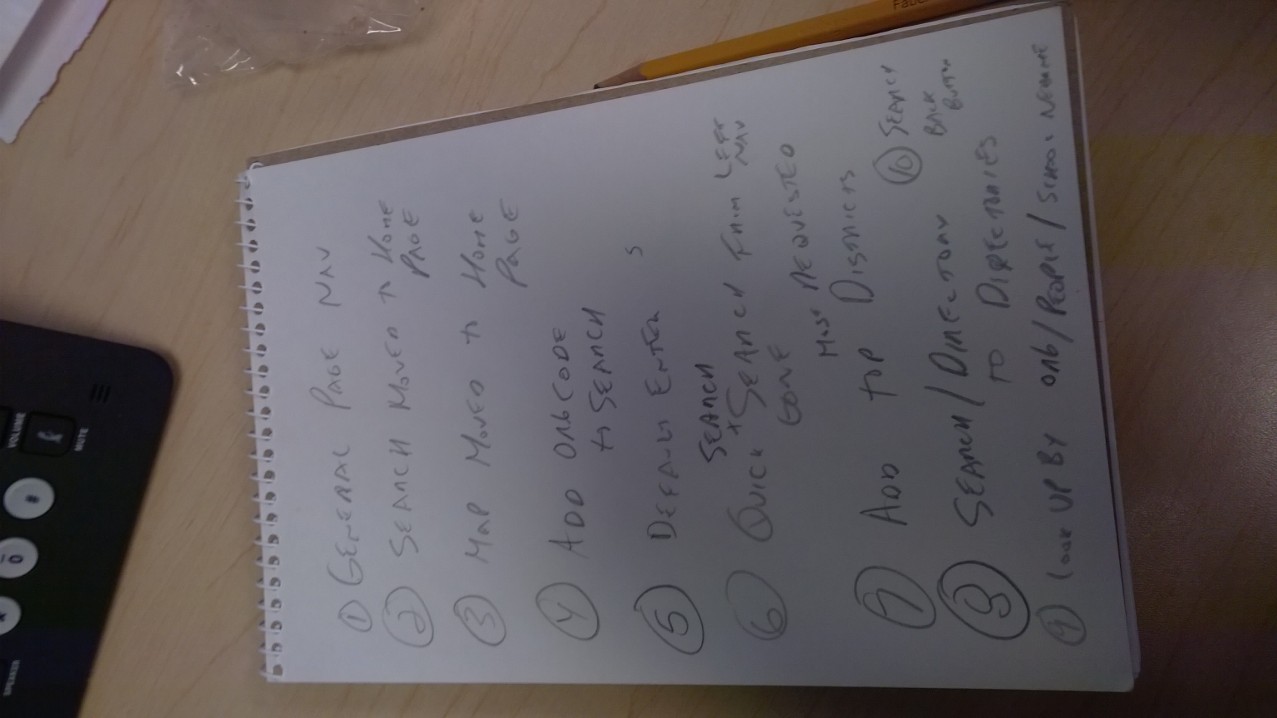 ① GENERAL PAGE NAV
② SEARCH MOVED to HOME
PAGE
③ MAP MOVED to HOME
PAGE
④ ADD ORGCODE
to SEARCH
⑤ DEFAULT ENTER S
SEARCH
⑥ QUICK + SEARCH FROM LEFT
NAV
GONE
MOST REQUESTED
⑦ ADD TOP DISTRICTS
⑧ SEARCH / DIRECTORY
TO DIRECTORIES
⑨ LOOK UP BY ORG/PEOPLE/SCHOOL
⑩ SEARCH
BACK
BUTTON
VOLUME
MUTE
SPEAKER
#
0
*